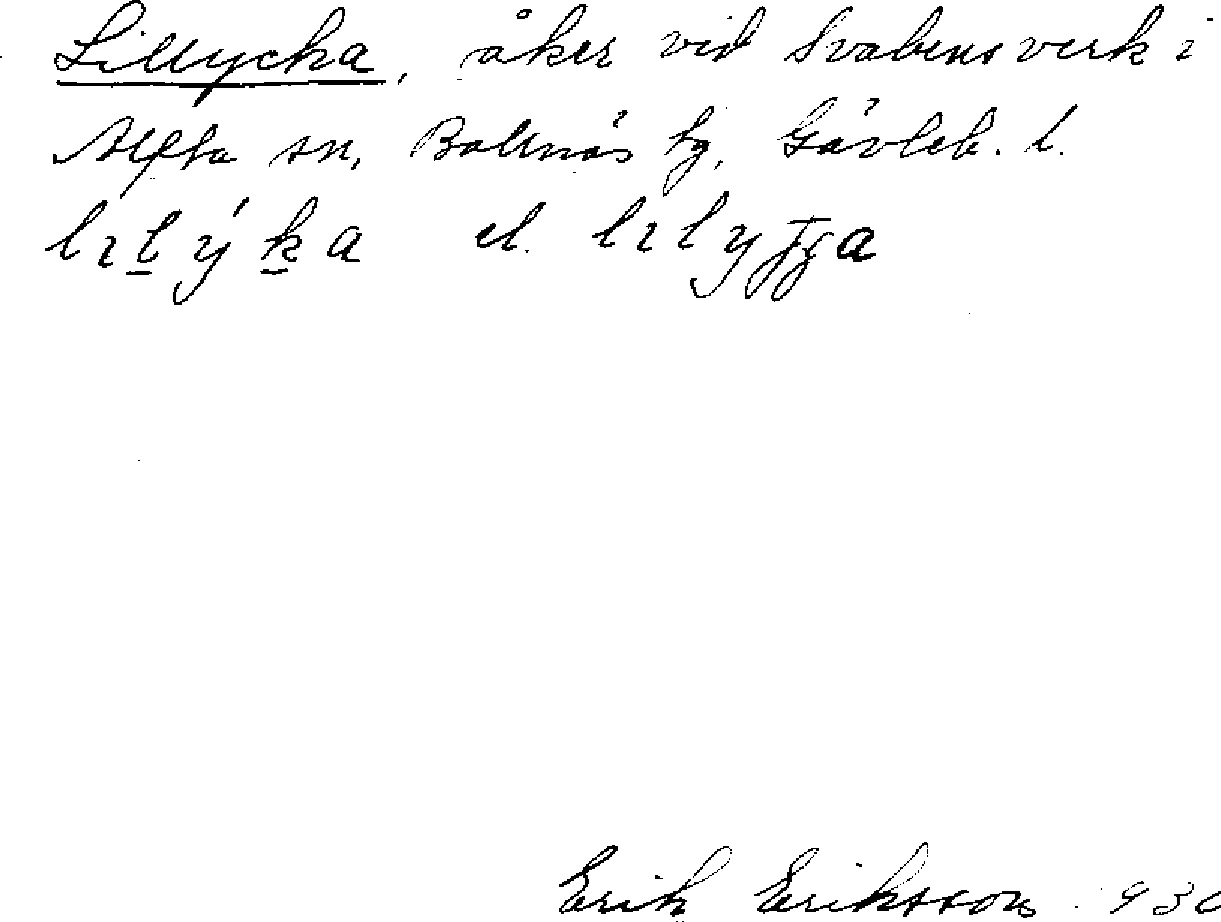 Lillycka, åker vid Svabensverk i
Alfta sn, Bollnäs tg, Gävleb. l.
lɩl̲ýk̲a el. lɩly
Erik Eriksson 930